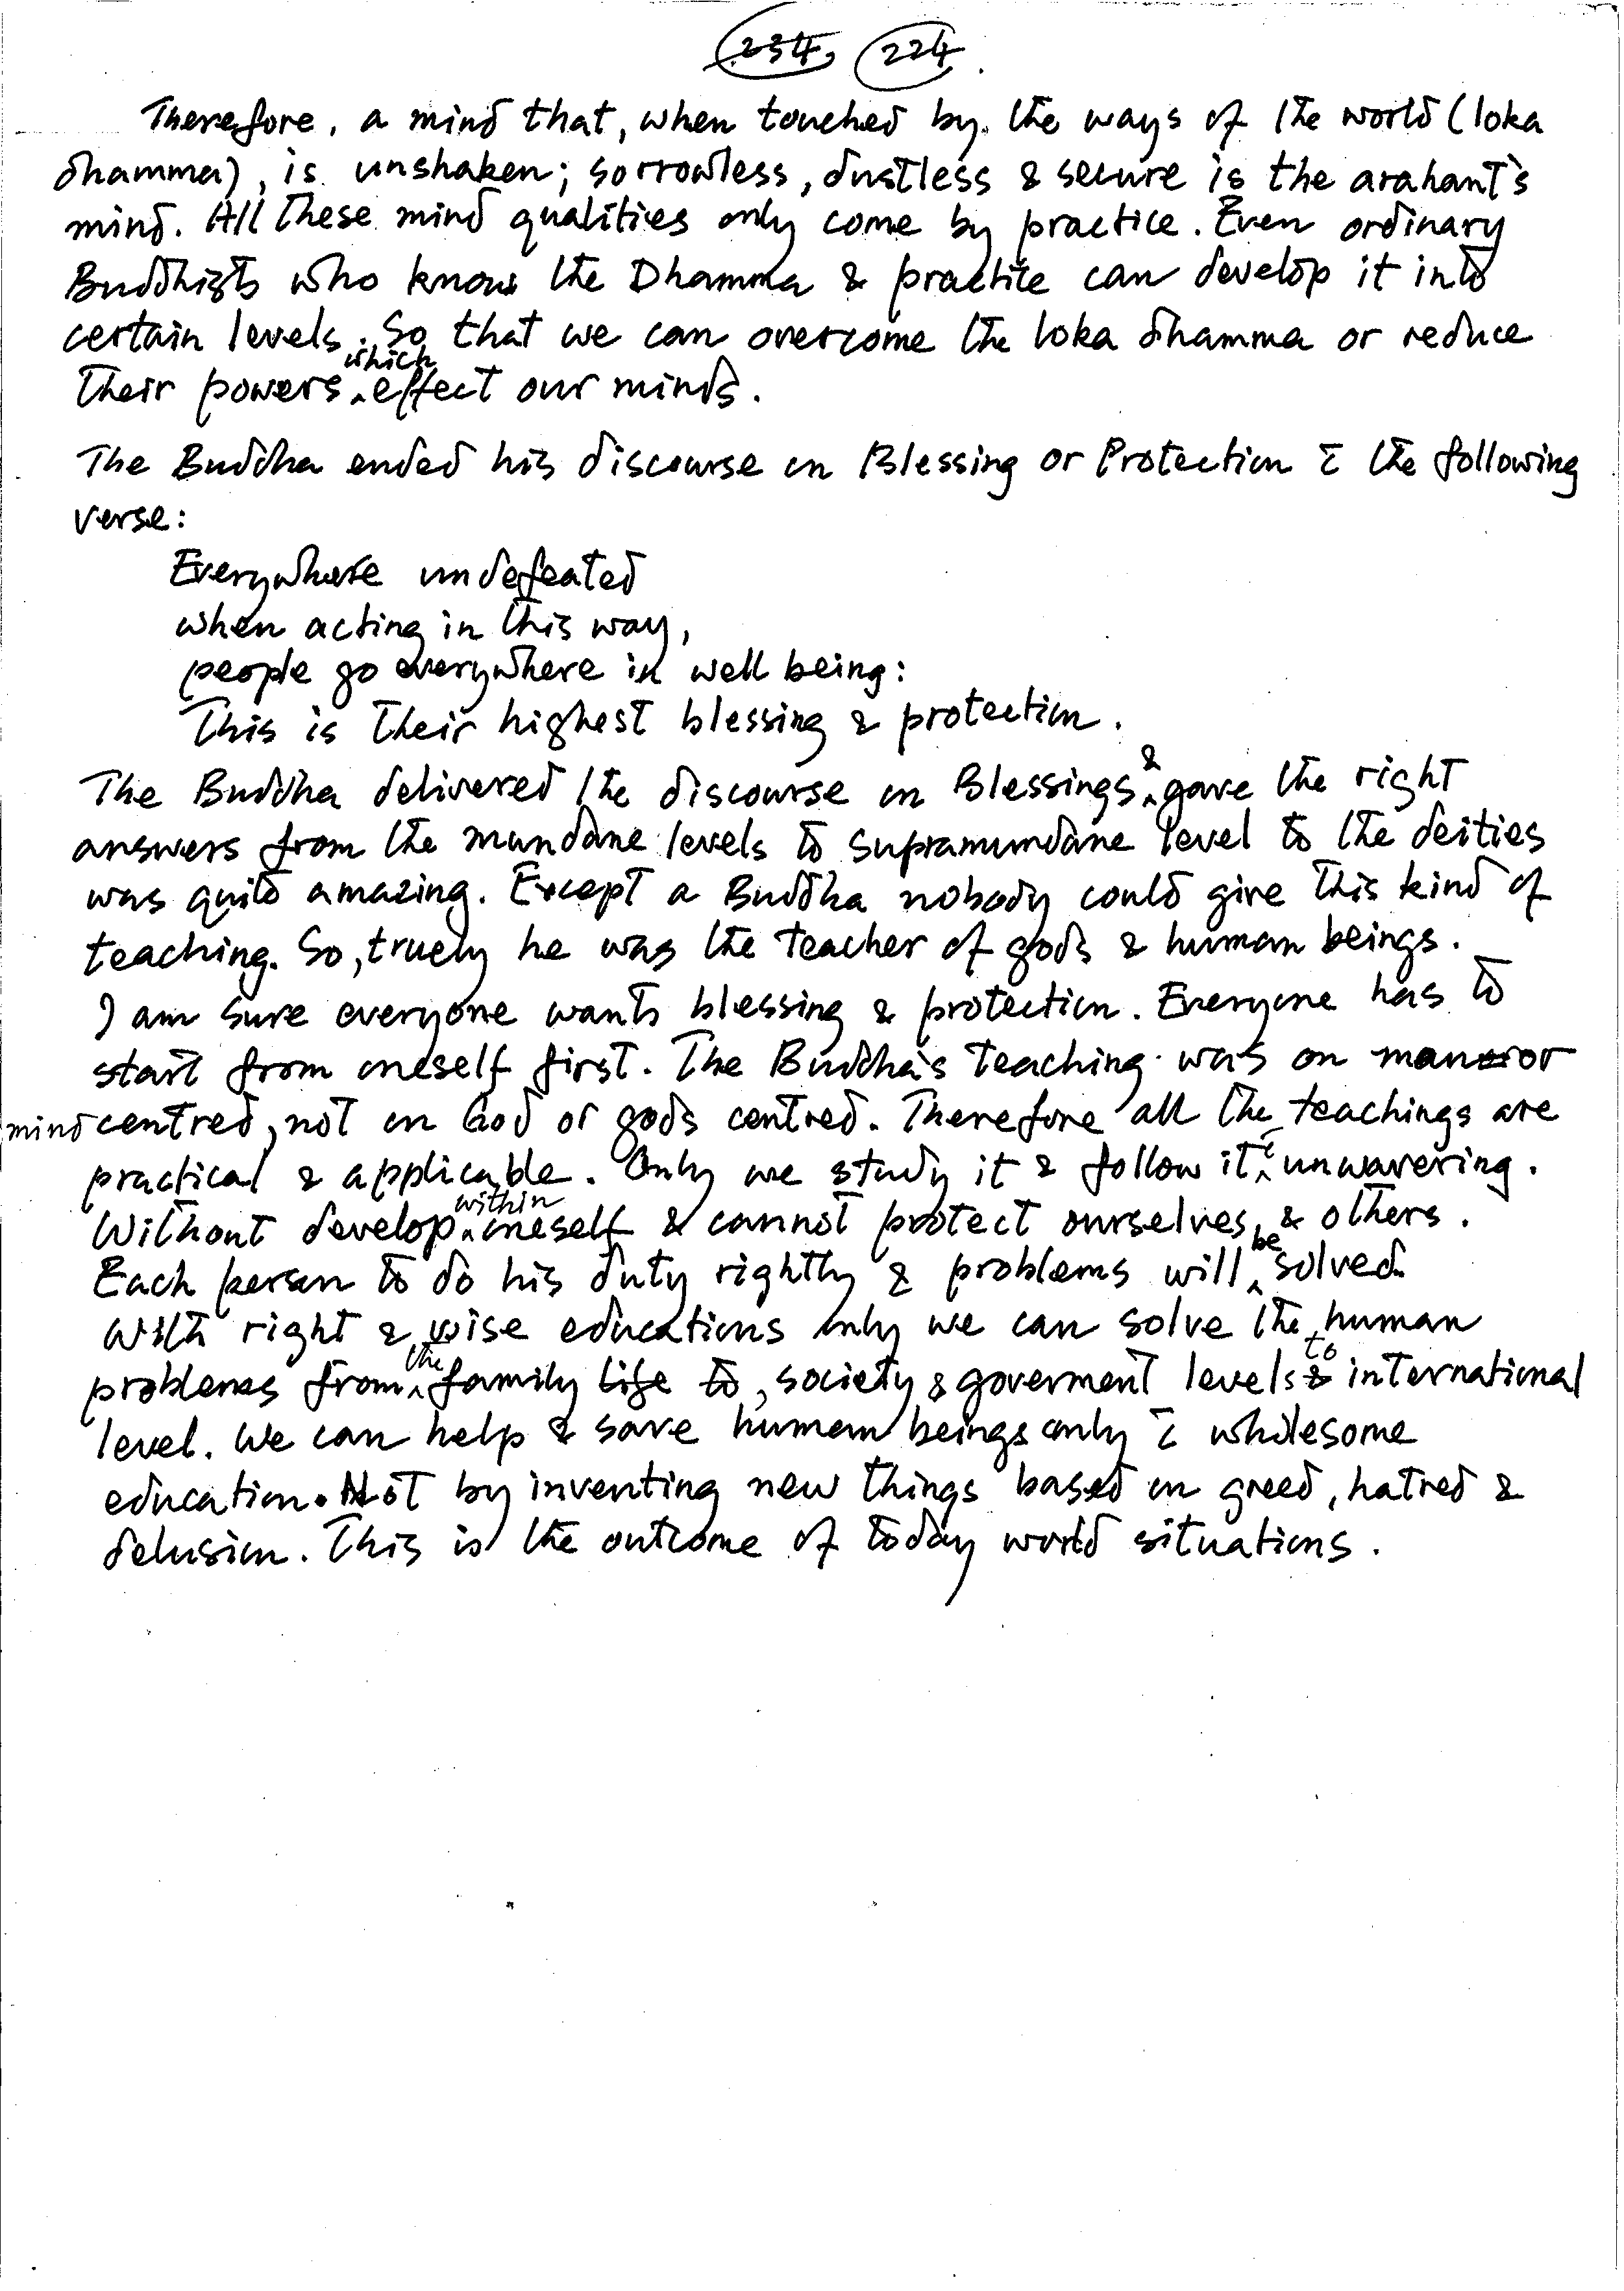 234, 224.
Therefore, a mind that, when touched by the ways of the world (loka
dhamma), is unshaken; sorrowless, dustless & secure is the arahant's
mind. All these mind qualities only come by practice. Even ordinary
Buddhists who know the Dhamma & practice can develop it into
certain levels. So that we can overcome the loka dhamma or reduce
their powers which effect our minds.
The Buddha ended his discourse on Blessing or Protection c̄ the following
verse:
Everywhere undefeated
when acting in this way,
people go everywhere in well being:
This is their highest blessing & protection.
The Buddha delivered the discourse on Blessings & gave the right
answers from the mundane levels to supramundane level to the deities
was quite amazing. Except a Buddha nobody could give this kind of
teaching. So, truely he was the teacher of gods & human beings.
I am sure everyone wants blessing & protection. Everyone has to
start from oneself first. The Buddha's teaching was on man or
mind centred, not on God or gods centred. Therefore all the teachings are
practical & applicable. Only we study it & follow it c̄ unwavering.
Without develop within oneself & cannot protect ourselves, & others.
Each person to do his duty rightly & problems will be solved.
With right & wise educations only we can solve the human
problems from the family life to, society & goverment levels to international
level. We can help & save human beings only c̄ wholesome
education. Not by inventing new things based on greed, hatred &
delusion. This is the outcome of today world situations.